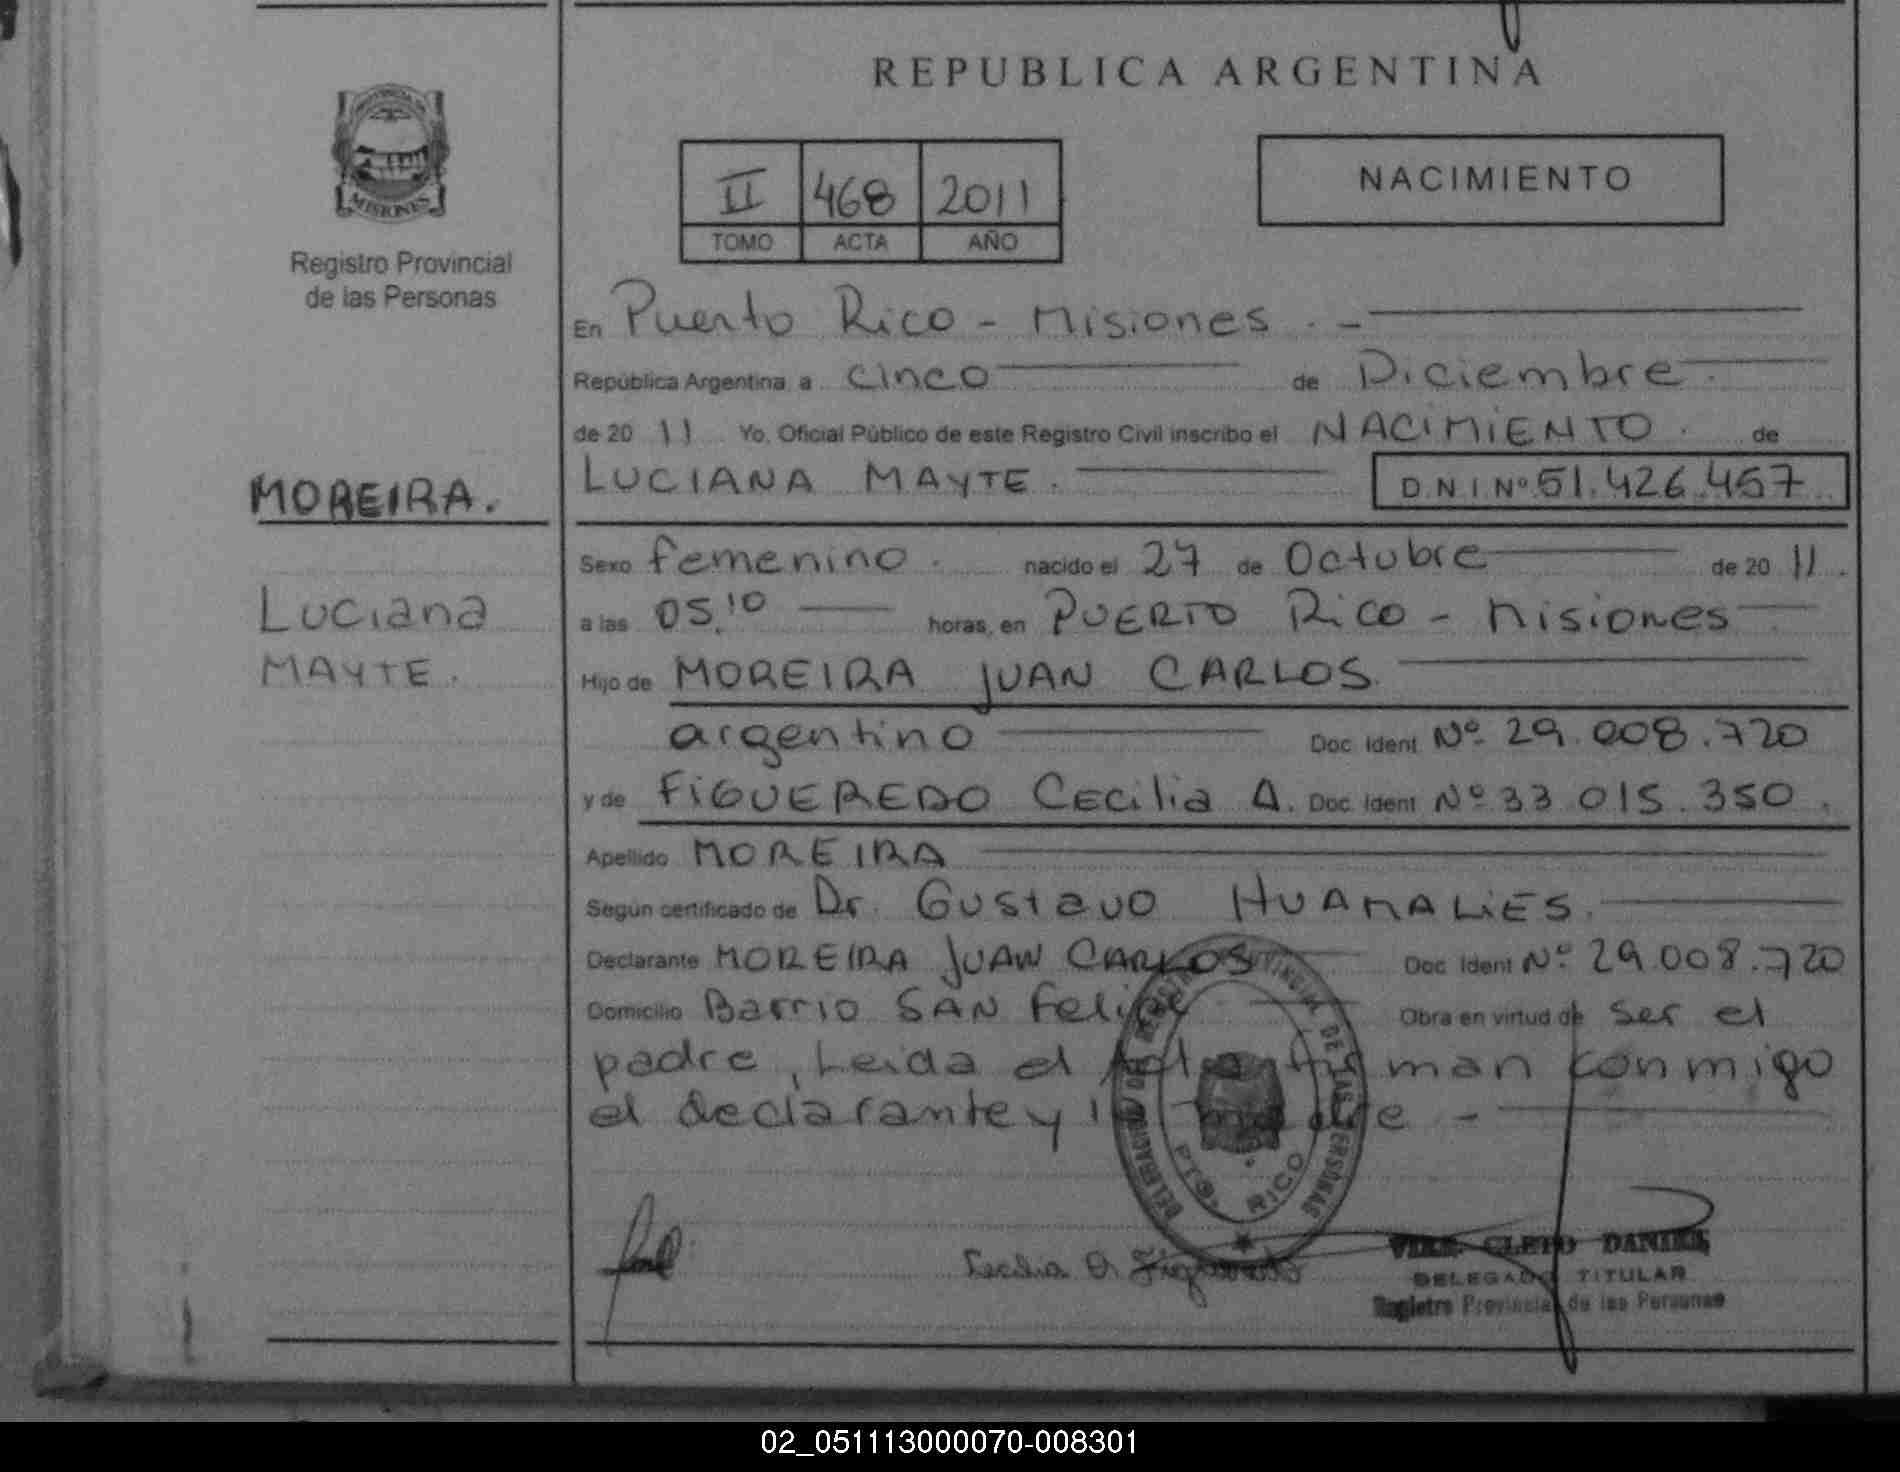 REPUBLICA ARGENTINA
MISIONES
Registro Provincial
de las Personas
II 468 2011
TOMO ACTA AÑO
NACIMIENTO
En Puerto Rico - Misiones . -
República Argentina a cinco de Diciembre .
de 20 11 Yo, Oficial Público de este Registro Civil inscribo el NACIMIENTO . de
LUCIANA MAYTE . D.N.I Nº 51.426.457
MOREIRA.
Luciana
MAYTE .
Sexo femenino . nacido el 27 de Octubre de 20 11 .
a las 05.10 horas, en PUERTO Rico - Misiones
Hijo de MOREIRA JUAN CARLOS.
argentino Doc Ident Nº 29.008.720
y de FIGUEREDO Cecilia A. Doc Ident Nº 33 015.350 .
Apellido MOREIRA
Según certificado de Dr. Gustavo HUAMALIES .
Declarante MOREIRA JUAN CARLOS Doc Ident Nº 29.008.720
Domicilio Barrio SAN Felipe Obra en virtud de ser el
padre, Leida el acta firman conmigo
el declarante y la madre -
DELEGACION DEL REGISTRO PROVINCIAL DE LAS PERSONAS
PTO. RICO
Cecilia A. Figueredo
CLETO DANIEL
DELEGADO TITULAR
Registro Provincial de las Personas
02_051113000070-008301